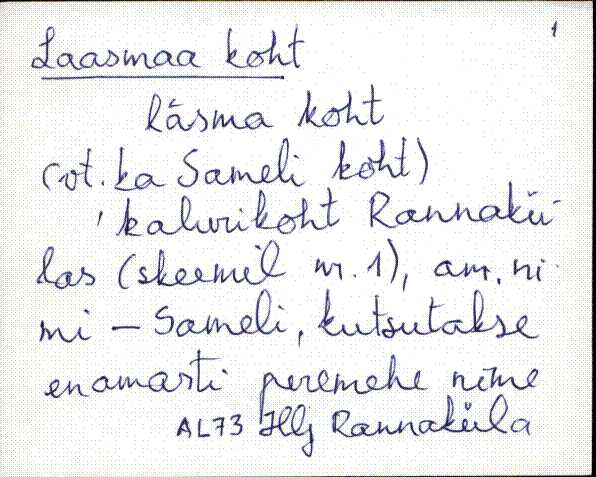 1
Laasmaa koht
lāsma koht
(vt. ka Sameli koht)
'kalurikoht Rannakü-
las (skeemil nr. 1), am. ni-
mi – Sameli, kutsutakse
enamasti peremehe nime
AL73 Hlj Rannaküla